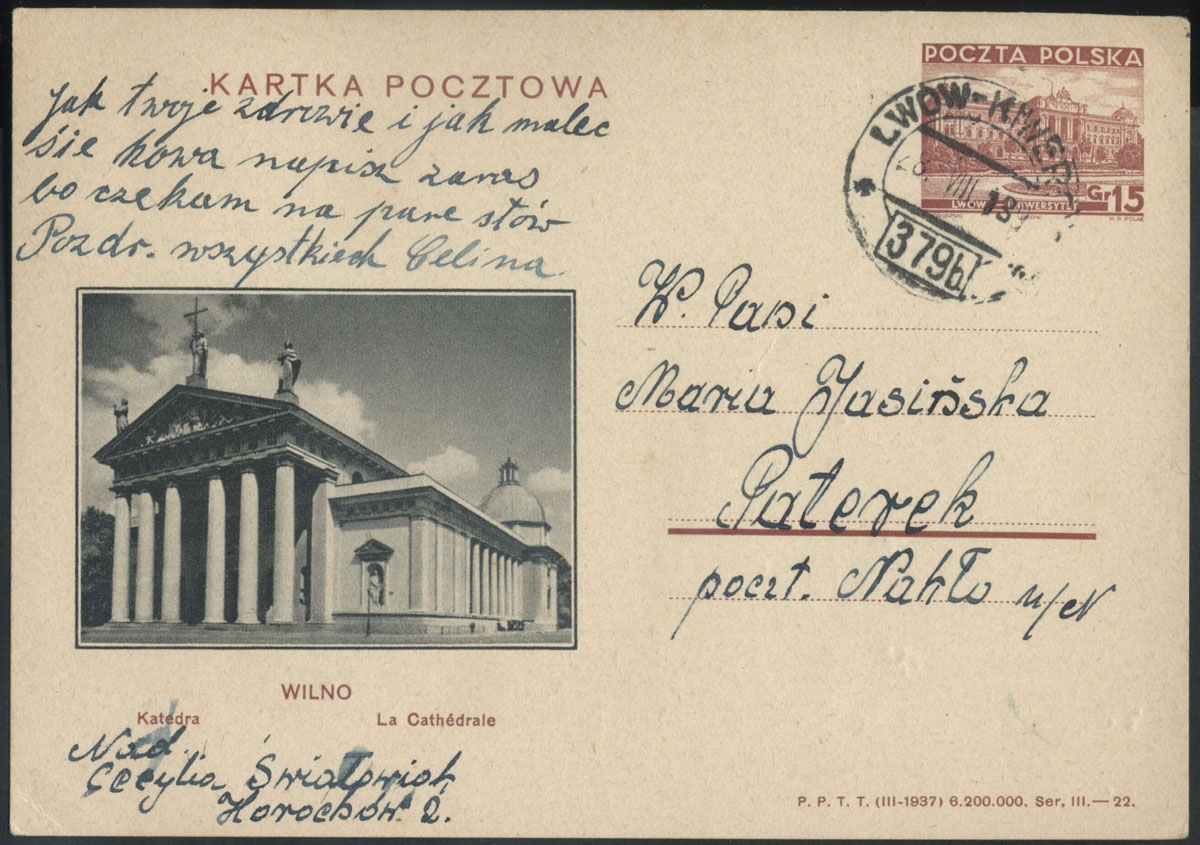 POCZTA POLSKA
KARTKA POCZTOWA
Jak twoje zdrowie i jak malec
sie howa napisz zaras
bo czekam na pare słów
Pozdr. wszystkich Celina
LWÓW-KIWERC
28 VIII
379b
Gr 15
LWÓW
H.R. POLAK
W. Pani
Maria Jasińska
Paterek
poczt. Nakło n/N
WILNO
Katedra
La Cathédrale
Nad.
Cecylia Światowiak
Horochów 2.
P. P. T. T. (III-1937) 6.200.000. Ser. III.— 22.